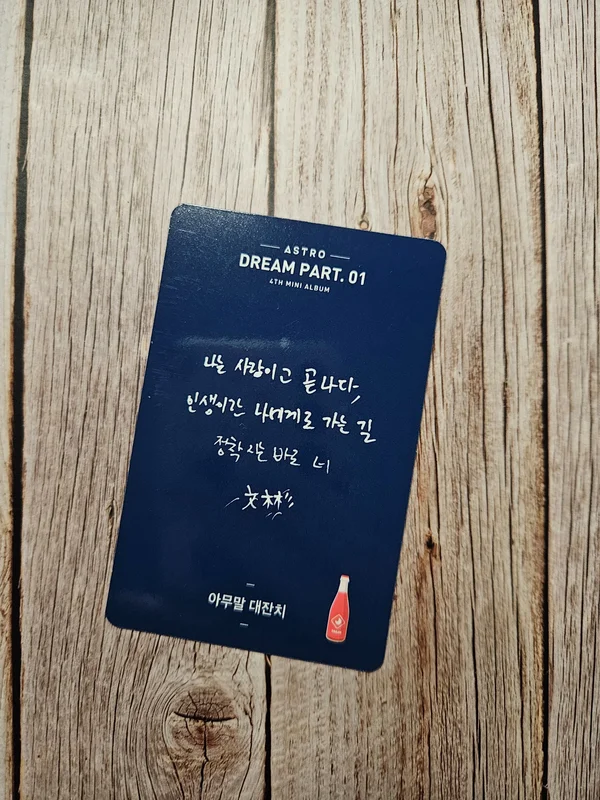 ASTRO
DREAM PART. 01
4TH MINI ALBUM
나는 사랑이고 곧 나다,
인생이란 너에게로 가는 길
정착지는 바로 너
文林
아무말 대잔치